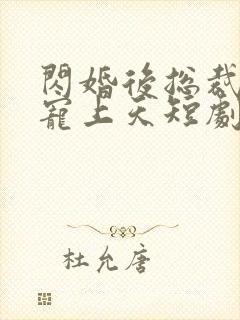 閃婚後總裁
寵上天短劇
杜允唐